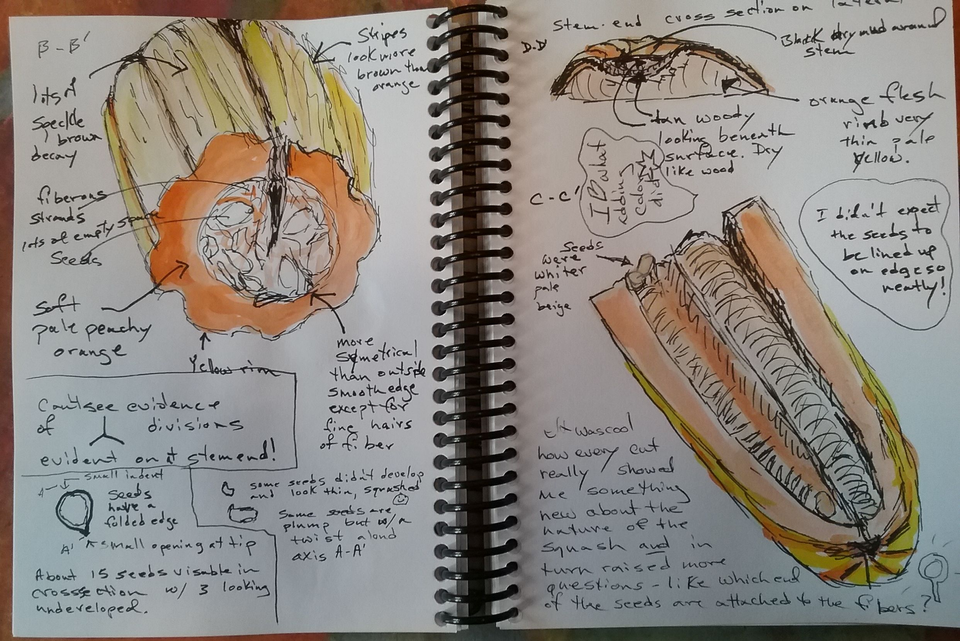 B-B'
Stripes
look more
brown than
orange
lots of
speckle
brown
decay
fiberous
strands
lots of empty space
Seeds
Soft
pale peachy
orange
Yellow rim
more
symetrical
than outside
smooth edge
except for
fine hairs
of fiber
Can't see evidence
of divisions
evident on stem end!
small indent
A
seeds
have a
folded edge
A' small opening at tip
some seeds didn't develop
and look thin, squashed
Some seeds are
plump but w/a
twist alond
axis A-A'
About 15 seeds visible in
crosssection w/ 3 looking
undeveloped.
Stem-end cross section on
D-D'
Black dry mud around
stem
tan woody
looking beneath
surface. Dry
like wood
orange flesh
rimb very
thin pale
yellow.
I B what
adding
color
did!
C-C'
Seeds
were
whiter
pale
beige
I didn't expect
the seeds to
be lined up
on edge so
neatly!
It was cool
how every cut
really showed
me something
new about the
nature of the
squash and in
turn raised more
questions - like which end
of the seeds are attached to the fibers?